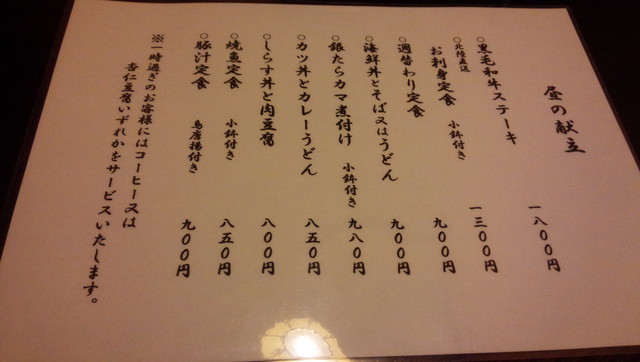 昼の献立
○黒毛和牛ステーキ 一八〇〇円
○北陸直送
お刺身定食 小鉢付き 一三〇〇円
○週替わり定食 九〇〇円
○海鮮丼とそば又はうどん 九〇〇円
○銀たらカマ煮付け 小鉢付き 九八〇円
○カツ丼とカレーうどん 八五〇円
○しらす丼と肉豆腐 八〇〇円
○焼魚定食 小鉢付き 八五〇円
○豚汁定食 鳥唐揚付き 九〇〇円
※一時過ぎのお客様にはコーヒー又は
杏仁豆腐いずれかをサービスいたします。